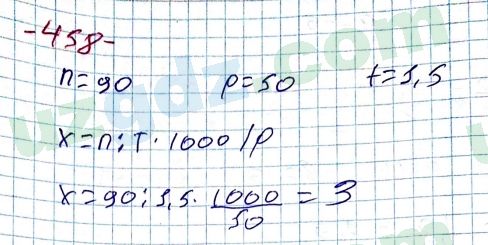 -458-
n=90 p=50 t=1,5
x=n:T·1000/p
x=90:1,5·1000/50=3